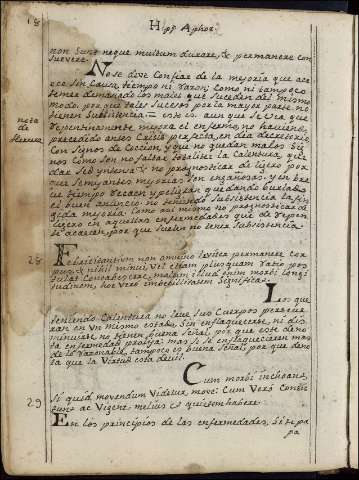 18
Hipp Aphor.
non sunt neque multum durare, & permanere con
suevere.
No se deve Confiar de la mejoria que aca
ece sin Causa, tiempo ni razon; Como ni tampoco
temer demasiado los males que suceden del mismo
modo. por que tales sucesos por la mayor parte no
tienen subsistencia = esto es, aun que se vea que
repentinamente mejora el enfermo, no haviendo
precedido antes Crisis perfecta, en dia decretorio
Con signos de Coccion, y que no queden malos sig
nos Como son no faltar totalmte la Calentura, que
dar sed yntensa & no pronosticar de ligero por
que semejantes mejorias son engañosas, y en bre
ve tiempo recaen y peligran quedando burlado
el buen anuncio no teniendo subsistencia la fin
gida mejoria. Como asi mismo no pronosticar de
ligero en aquellas enfermedades que de repen
te acaecen, por que suelen no tener subsistencia.
nota
de
28
Febricitantium non omnino leviter permanere cor
pus, & nihil minui, vel etiam plusquam ratio pos
tulat Contabescere, malum: illud enim morbi longi
tudinem, hoc vero imbecillitatem significat.
Los que
teniendo Calentura no leve, sus Cuerpos perseve
ran en un mismo estado, sin enflaquecerse, ni dis
minuirse no tienen buena señal, por que este deno
ta enfermedad prolija: mas si se enflaquecieren mas
de lo razonable, tampoco es buena señal, por que deno
ta que la virtud esta devil.
Cum morbi inchoant,
29
Si quid movendum videtur, move: Cum vero Consis
tunt ac vigent, melius est quietem habere.
En los principios de las enfermedades, si te pa
pa